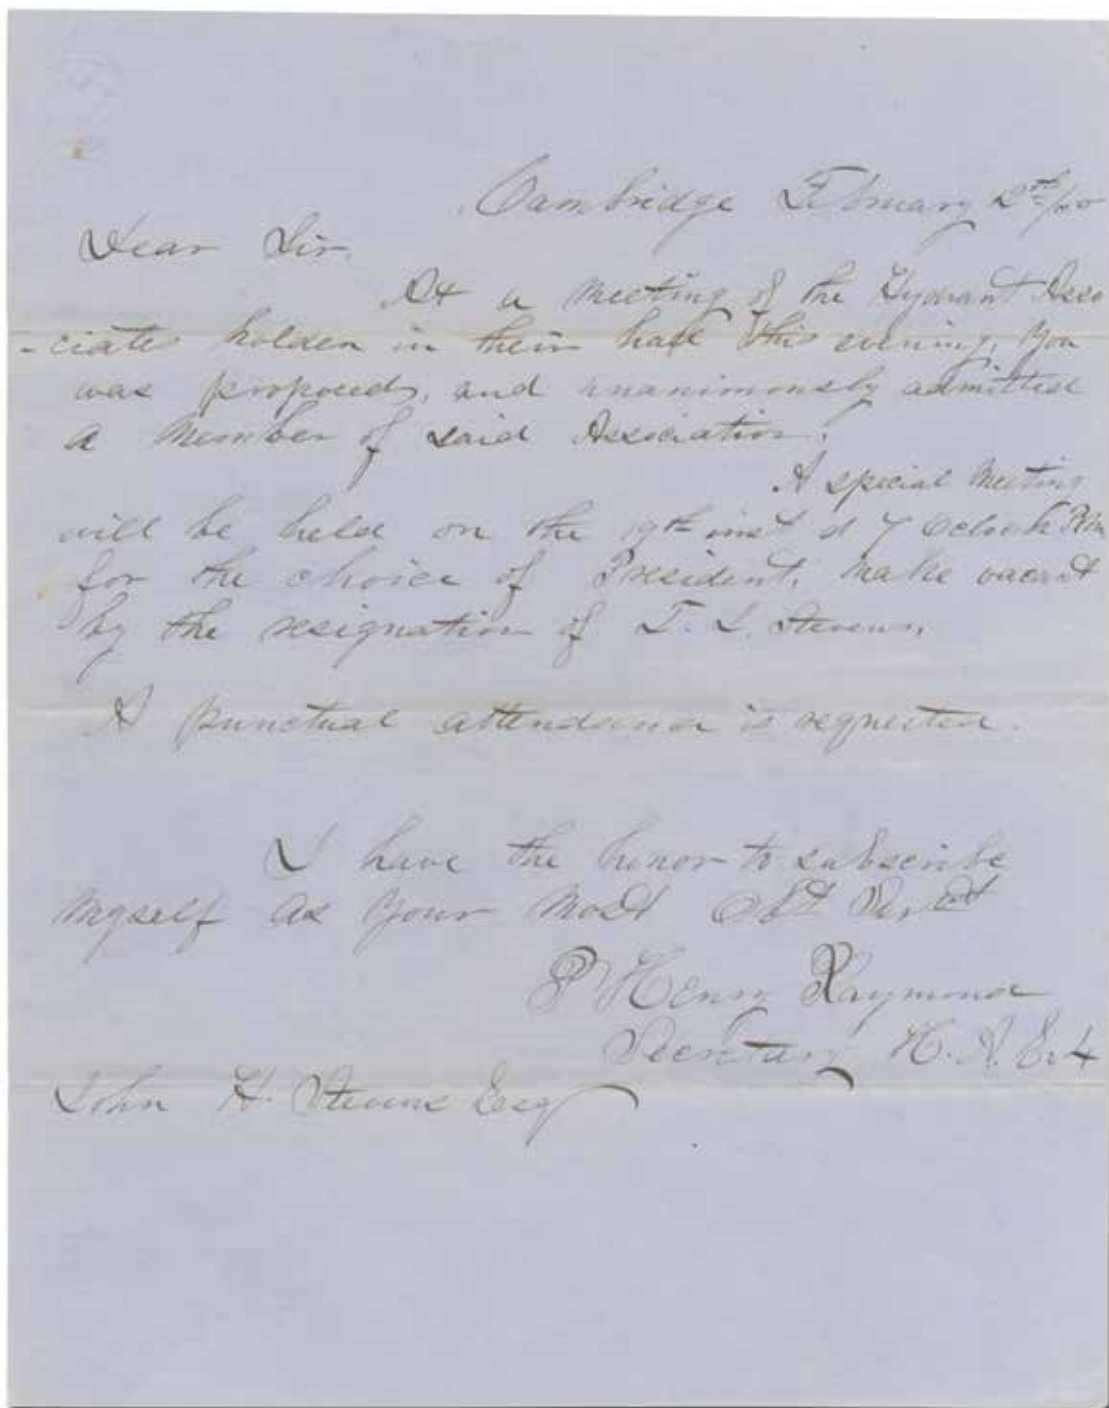 Cambridge February
Dear Sir.
At a meeting of the Hydrant Asso
-ciates holden in their hall this evening, you
was proposed, and unanimously admitted
a Member of said Association.
A special Meeting
will be held on the 19th inst at 7 Oclock PM
for the choice of President, make vacant
by the resignation of T. L. Stevens.
A punctual attendance is requested.
I have the honor to subscribe
myself as your most Obt Servt
P Henry Raymond
Secretary H. A. E. 4
John H. Stevens Esq